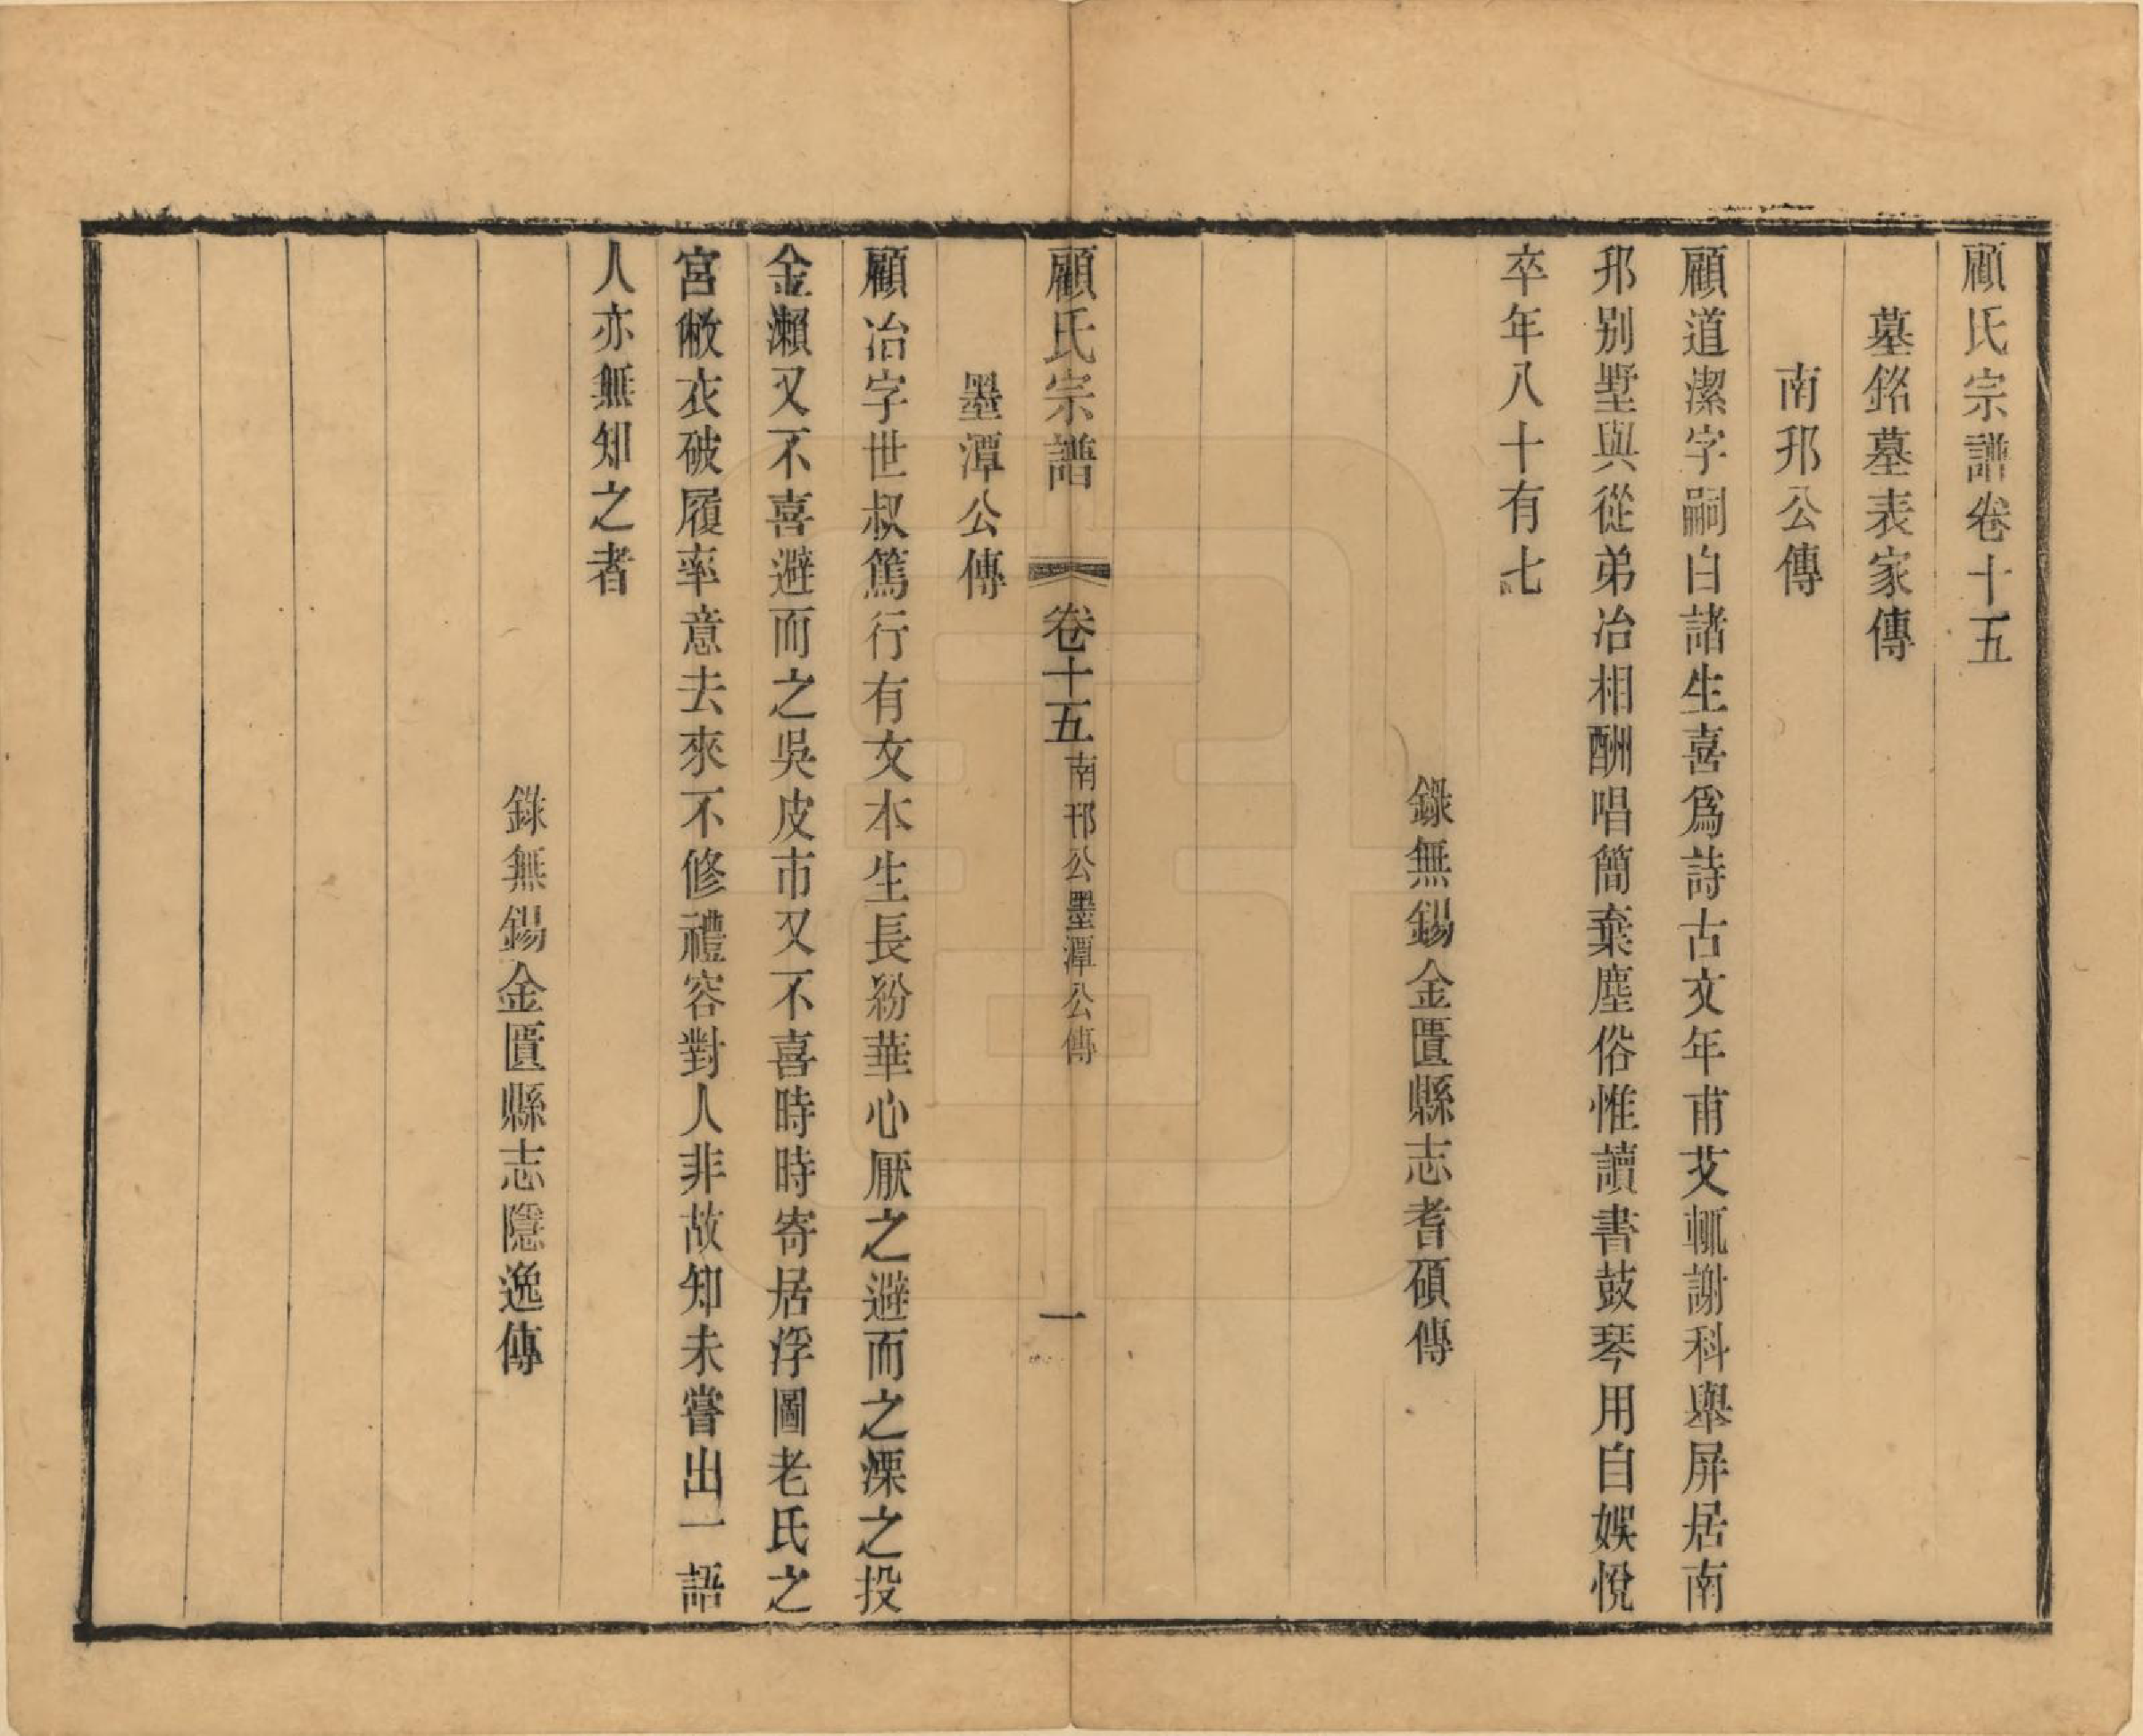 顧氏宗譜卷十五
墓銘墓表家傳
南邗公傳
顧道潔字嗣白諸生喜爲詩古文年甫艾輒謝科舉屏居南
邗別墅與從弟冶相酬唱簡棄塵俗惟讀書鼓琴用自娛悅
卒年八十有七
錄無錫金匱縣志耆碩傳
顧氏宗譜 卷十五 南邗公墨潭公傳 一
墨潭公傳
顧冶字世叔篤行有文本生長紛華心厭之避而之溧之投
金瀨又不喜避而之吳皮市又不喜時時寄居浮圖老氏之
宮敝衣破履率意去來不修禮容對人非故知未嘗出一語
人亦無知之者
錄無錫金匱縣志隱逸傳